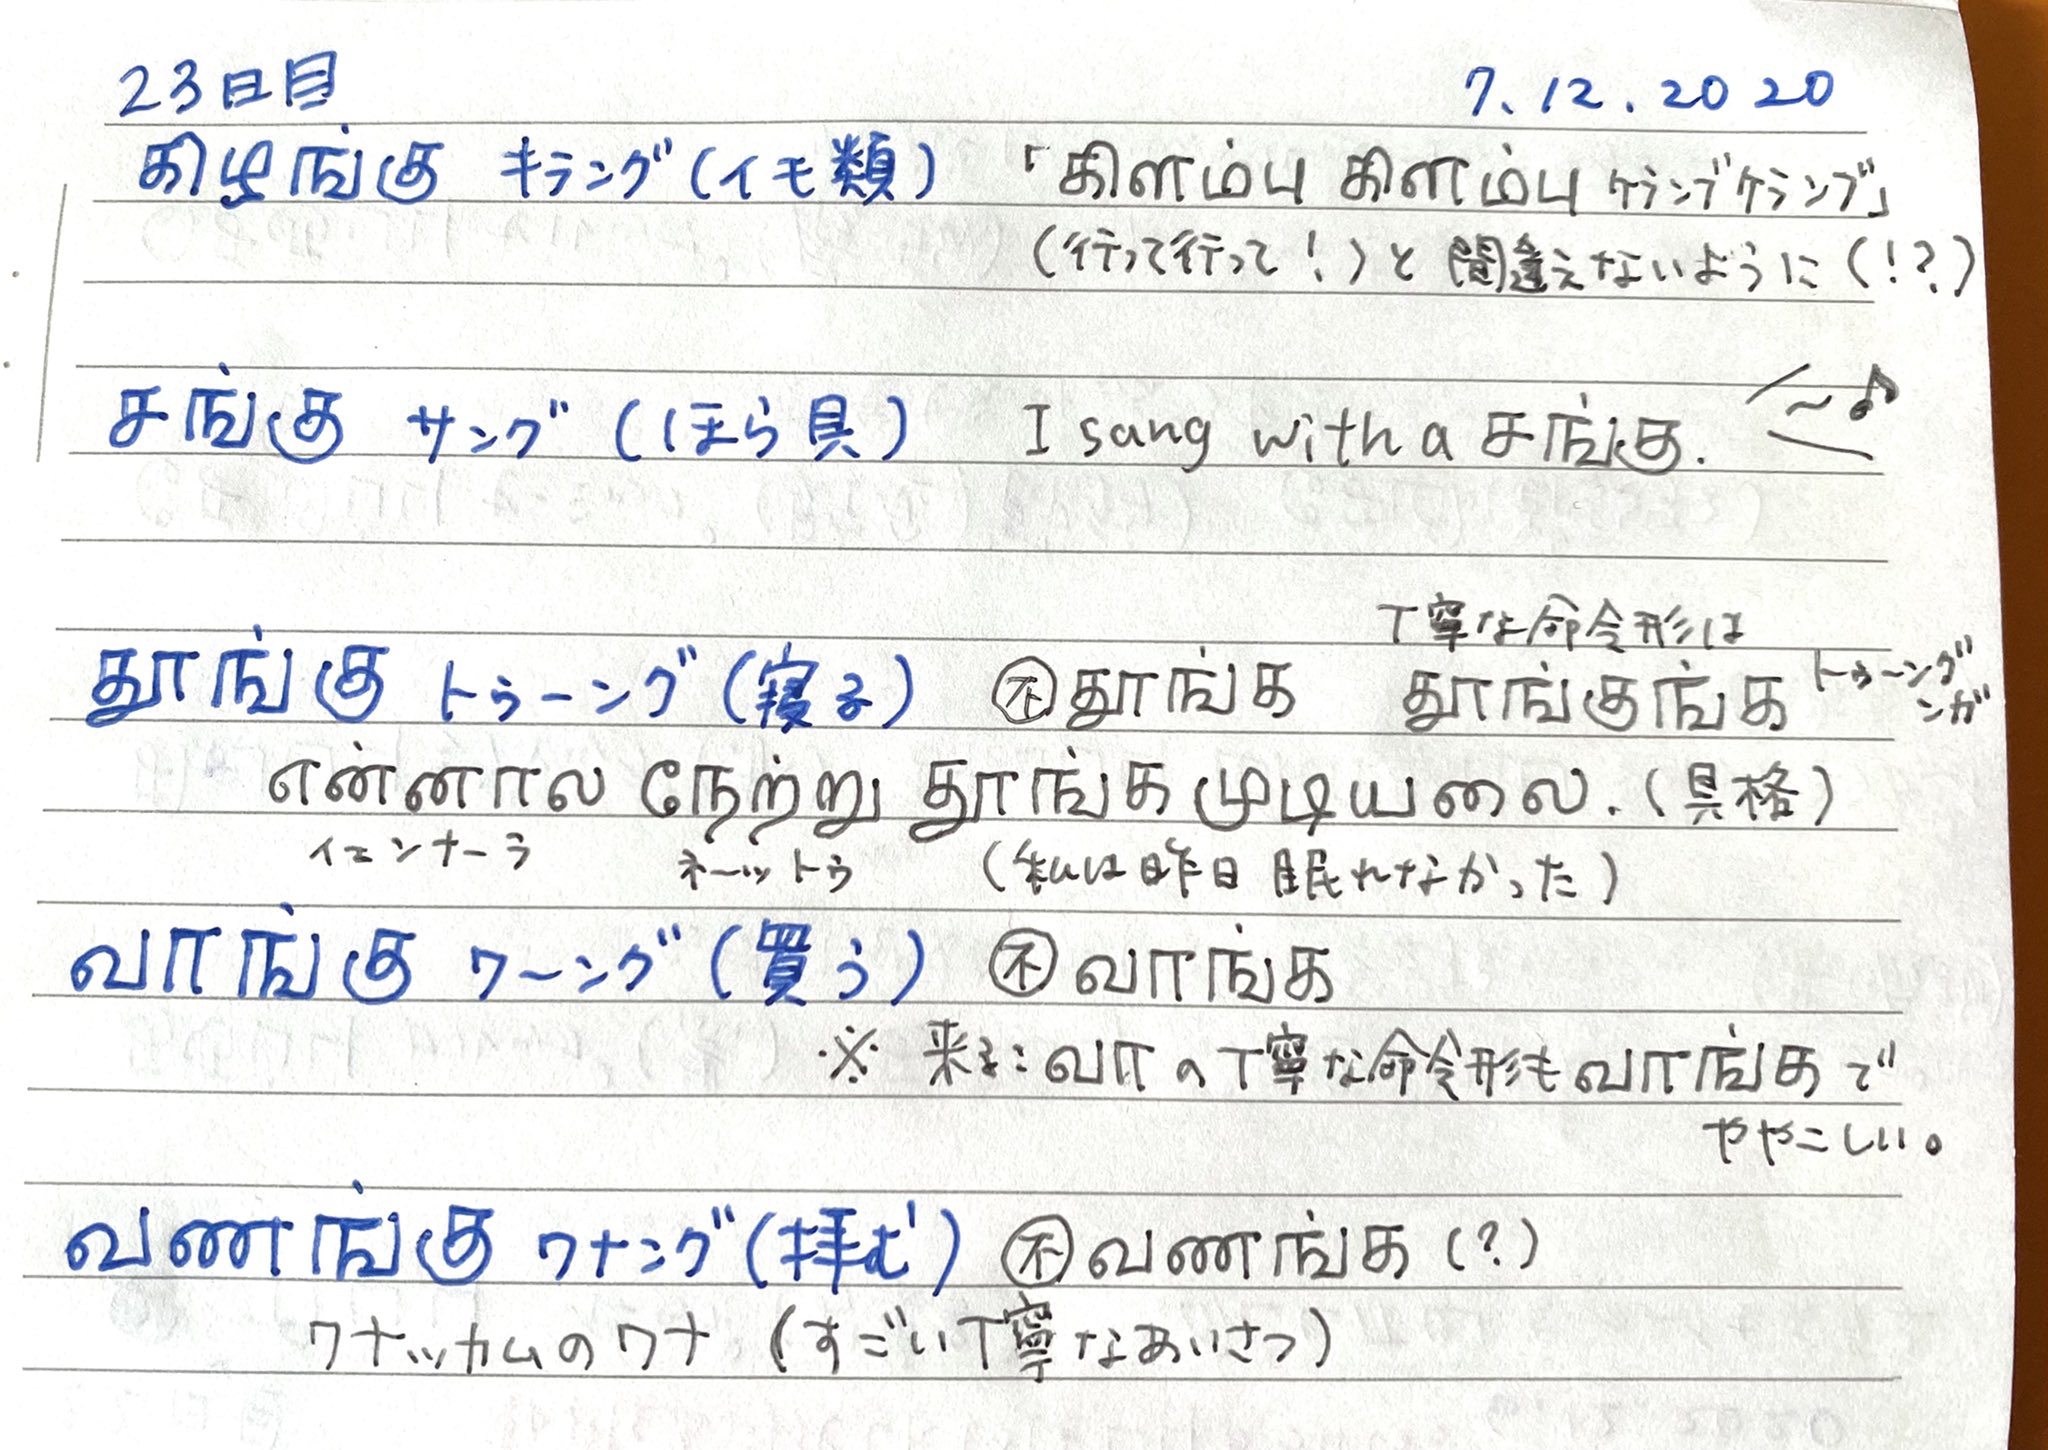 23日目 7.12.2020
கிழங்கு キラング(イモ類) 「கிளம்பு கிளம்பு ケランブケランブ」
(行って行って!)と間違えないように(!?)
சங்கு サング (ほら貝) I sang with a சங்கு. ~♪
丁寧な命令形は
தூங்கு トゥーング(寝る) 不 தூங்க தூங்குங்க トゥーングンガ
என்னால நேற்று தூங்க முடியலை. (具格)
イエンナーラ ネーットゥ (私は昨日眠れなかった)
வாங்கு ワーング(買う) 不 வாங்க
※ 来る: வா の丁寧な命令形も வாங்க で
ややこしい。
வணங்கு ワナング(拝む) 不 வணங்க (?)
ワナッカムのワナ (すごい丁寧なあいさつ)